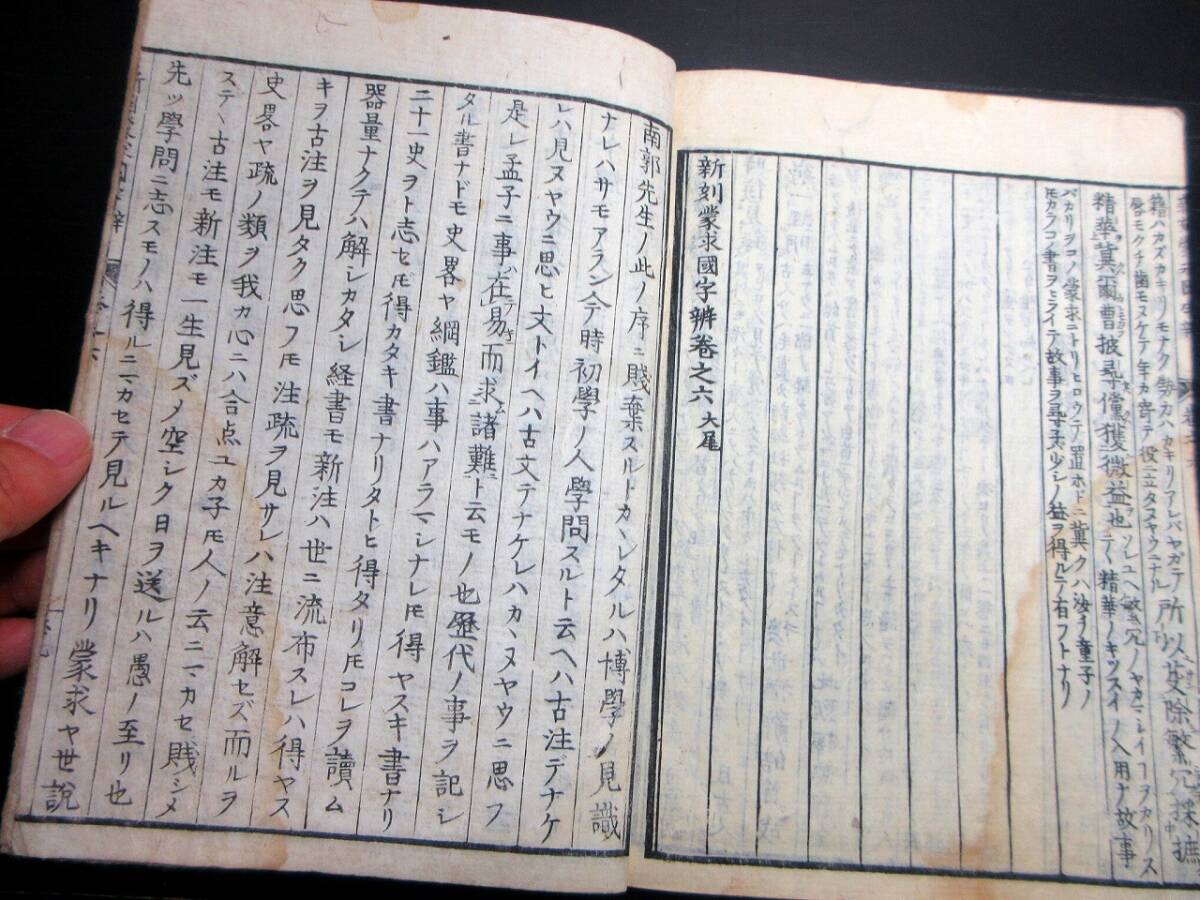 籍ハカズカキリモナク勢カハカキリアレバヤガテ
唇モクチ歯モヌケテ年カ寄テ役ニ立タヌヤウニナル
所以芟除繁冗採摭
精華冀爾曹披尋儻獲微益也
精華ノキツスイノ入用ナ故事
バカリヲコノ蒙求ニトリヒロウテ置ホドニ冀クハ汝ラ童子ノ
トモカラコノ書ヲヒライテ故事ヲ尋子少シノ益ヲ得ルテ有フトナリ
新刻蒙求國字辨卷之六 大尾
南郭先生ノ此ノ序ニ賤棄スルトカヽレタルハ博學ノ見識
ナレハサモアラン今時初學ノ人學問スルト云ヘハ古注デナケ
レハ見ヌヤウニ思ヒ文トイヘハ古文テナケレハカヽヌヤウニ思フ
是レ孟子ニ事在易而求諸難ト云モノ也歴代ノ事ヲ記シ
タル書ナドモ史畧ヤ綱鑑ハ事ハアラマシナレ𪜈得ヤスキ書ナリ
二十一史ヲト志セ𪜈得カタキ書ナリタトヒ得タリ𪜈コレヲ讀ム
器量ナクテハ解シカタシ経書モ新注ハ世ニ流布スレハ得ヤス
キヲ古注ヲ見タク思フ𪜈注疏ヲ見サレハ注意解セズ而ルヲ
史畧ヤ疏ノ類ヲ我カ心ニハ合点ユカ子𪜈人ノ云ニマカセ賤シメ
ステヽ古注モ新注モ一生見ズノ空シク日ヲ送ルハ愚ノ至リ也
先ッ學問ニ志スモノハ得ルニマカセテ見ルヘキナリ蒙求ヤ世説